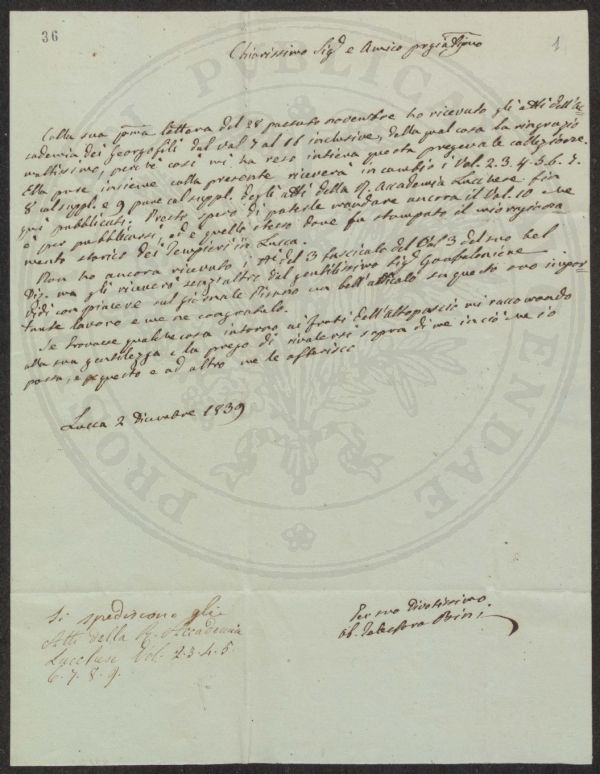 36
1
Chiarissimo Sig.r e Amico
Colla sua lettera del 28 passato novembre ho ricevuto gli Atti dell'Ac
cademia dei Georgofili dal Vol 7 al 16 inclusive, della qual cosa la ringrazio
moltissimo, perchè così mi ha reso intiera questa pregevole collezione.
Ella pure insieme colla presente riceverà in cambio i Vol. 2. 3. 4. 5. 6. 7.
8 col suppl. e 9 pure col suppl. degli Atti della R. Accademia Lucchese fin
qui pubblicati. Presto spero di poterle mandare ancora il Vol. 10 che
è per pubblicarsi, ed è quello stesso dove fu stampato il mio ragiona
mento storico dei Tempieri in Lucca.
Non ho ancora ricevuto i del 3 fascicolo del Vol 3 del suo bel
Diz. ma gli riceverò senz'altro dal gentilissimo Sig.r
Vidi con piacere sul giornale un bell'articolo su questo suo impor
tante lavoro e me ne congratulo.
Se trovasse qualche cosa intorno ai frati dell'Altopascio mi raccomando
alla sua gentilezza e la prego di rivalersi sopra di me in ciò che io
possa, e questo e ad altro me le offerisco
Lucca 2 Dicembre 1839
Suo Devotissimo
Ab. Telesforo Bini
Si spediscono gli
Atti della R. Accademia
Lucchese Vol. 2. 3. 4. 5.
6. 7. 8. 9.
PRO PUBLICA ENDAE